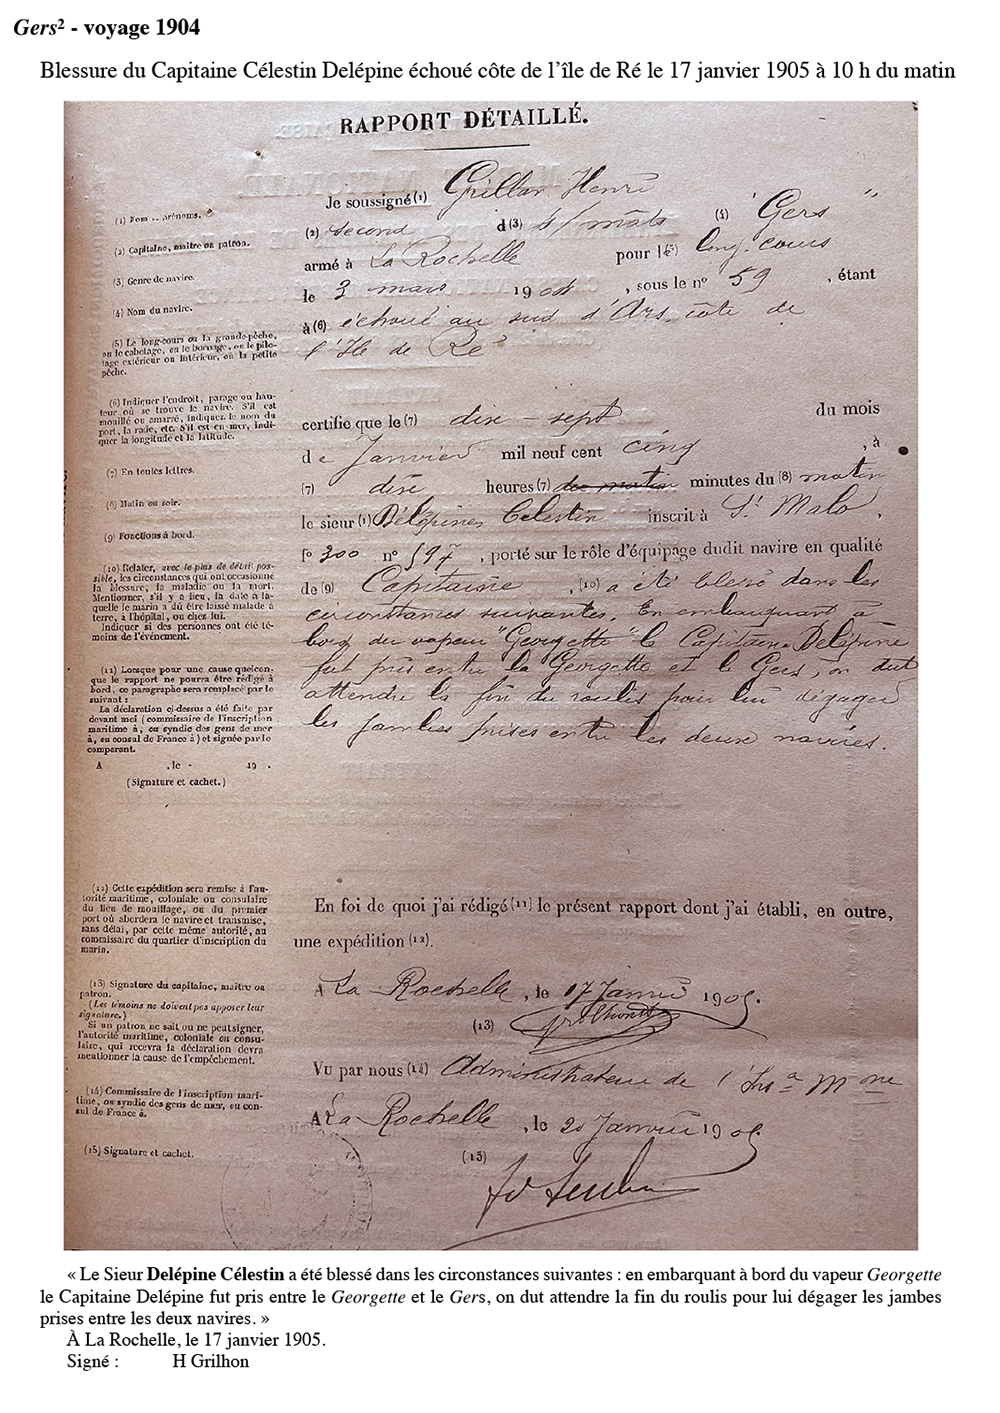 Gers² - voyage 1904
Blessure du Capitaine Célestin Delépine échoué côte de l'île de Ré le 17 janvier 1905 à 10 h du matin
RAPPORT DÉTAILLÉ.
Je soussigné (1) Grillon Henri
(2) second d (3) 4/mâts (4) "Gers"
armé à La Rochelle pour l (5) long-cours
le 3 mars 1904, sous le n° 59, étant
à (6) échoué au sud d'Ars côte de
l'Ile de Ré
certifie que le (7) dix-sept du mois
de Janvier mil neuf cent cinq, à
(7) dix heures (7) minutes du (8) matin
le sieur (1) Délépine Celestin inscrit à St Malo,
f° 300 n° 597, porté sur le rôle d'équipage dudit navire en qualité
de (9) Capitaine, (10) a été blessé dans les
circonstances suivantes. En embarquant à
bord du vapeur "Georgette" le Capitaine Delépine
fut pris entre la Georgette et le Gers, on dut
attendre la fin du roulis pour lui dégager
les jambes prises entre les deux navires.
En foi de quoi j'ai rédigé (11) le présent rapport dont j'ai établi, en outre,
une expédition (12).
A La Rochelle, le 17 Janvier 1905.
(13)
Vu par nous (14) Administrateur de l'Insª Mme
A La Rochelle, le 20 Janvier 1905.
(15)
(1) Nom et prénoms.
(2) Capitaine, maître ou patron.
(3) Genre de navire.
(4) Nom du navire.
(5) Le long-cours ou la grande-pêche,
ou le cabotage, ou le bornage, ou le pilo-
tage extérieur ou intérieur, ou la petite
pêche.
(6) Indiquer l'endroit, parage ou hau-
teur où se trouve le navire. S'il est
mouillé ou amarré, indiquer le nom du
port, la rade, etc. S'il est en mer, indi-
quer la longitude et la latitude.
(7) En toutes lettres.
(8) Matin ou soir.
(9) Fonctions à bord.
(10) Relater, avec le plus de détail pos-
sible, les circonstances qui ont occasionné
la blessure, la maladie ou la mort.
Mentionner, s'il y a lieu, la date à la-
quelle le marin a dû être laissé malade à
terre, à l'hôpital, ou chez lui.
Indiquer si des personnes ont été té-
moins de l'événement.
(11) Lorsque pour une cause quelcon-
que le rapport ne pourra être rédigé à
bord, ce paragraphe sera remplacé par le
suivant :
La déclaration ci-dessus a été faite par
devant moi (commissaire de l'inscription
maritime à, ou syndic des gens de mer
à, ou consul de France à) et signée par le
comparant.
A , le 19 .
(Signature et cachet.)
(12) Cette expédition sera remise à l'au-
torité maritime, coloniale ou consulaire
du lieu de mouillage, ou du premier
port où abordera le navire et transmise,
sans délai, par cette même autorité, au
commissaire du quartier d'inscription du
marin.
(13) Signature du capitaine, maître ou
patron.
(Les témoins ne doivent pas apposer leur
signature.)
Si un patron ne sait ou ne peut signer,
l'autorité maritime, coloniale ou consu-
laire, qui recevra la déclaration devra
mentionner la cause de l'empêchement.
(14) Commissaire de l'inscription mari-
time, ou syndic des gens de mer, ou con-
sul de France à.
(15) Signature et cachet.
« Le Sieur Delépine Célestin a été blessé dans les circonstances suivantes : en embarquant à bord du vapeur Georgette
le Capitaine Delépine fut pris entre le Georgette et le Gers, on dut attendre la fin du roulis pour lui dégager les jambes
prises entre les deux navires. »
À La Rochelle, le 17 janvier 1905.
Signé : H Grilhon